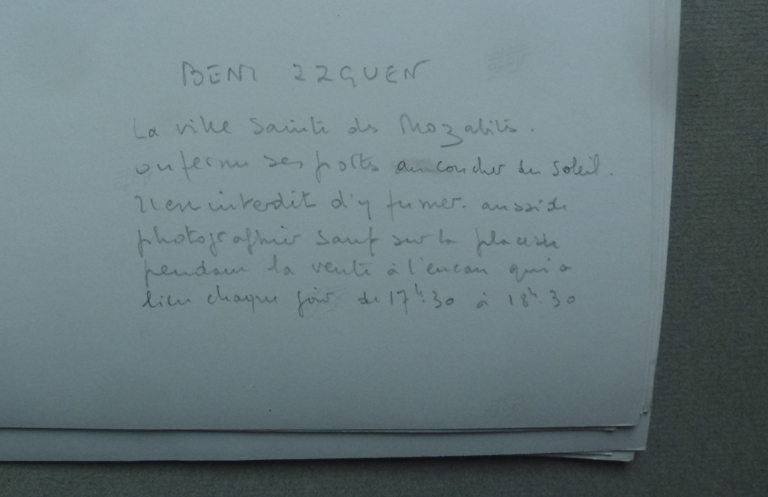 BENI IZGUEN
La ville Sainte des Mozabites.
on ferme ses portes au coucher du soleil.
Il est interdit d'y fumer. aussi de
photographier sauf sur la place de
pendant la vente à l'encan qui a
lieu chaque jour de 17h30 à 18h30